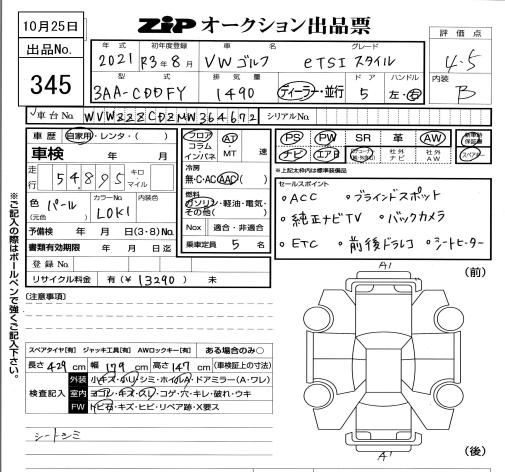 10月25日
出品No.
345
ZIP オークション出品票
評価点
4.5
内装
B
年式 初年度登録 車名 グレード
2021 R3年8月 VWゴルフ eTSIスタイル
型式 排気量 ドア ハンドル
3AA-CDDFY 1490 ディーラー・並行 5 左・右
車台No. WVWZZZCDZMW364672 シリアルNo.
車歴 自家用・レンタ・( )
車検 年 月
走行 54,895 キロ マイル
色 パール (元色) カラーNo. L0K1 内装色
予備検 年 月 日(3・8)No.
書類有効期限 年 月 日迄
登録No.
リサイクル料金 有(¥13290) 未
フロア コラム インパネ AT・MT 速
冷房
無・C・AC・AAC( )
燃料
ガソリン・軽油・電気・その他( )
Nox 適合・非適合
乗車定員 5 名
PS PW SR 革 AW
ナビ エアB 社外ナビ 社外AW スペアキー
※上記太枠内は標準装備品
セールスポイント
・ACC ・ブラインドスポット
・純正ナビTV ・バックカメラ
・ETC ・前後ドラレコ ・シートヒーター
※ご記入の際はボールペンで強くご記入下さい。
〔注意事項〕
スペアタイヤ[有] ジャッキ工具[有] AWロックキー[有] ある場合のみ○
長さ429cm 幅179cm 高さ147cm (車検証上の寸法)
検査記入
外装 小キズ・小リ・シミ・ホイルA・ドアミラー(A・ワレ)
室内 ヨゴレ・キズ・スレ・コゲ・穴・キレ・破れ・ウキ
FW トビ石・キズ・ヒビ・リペア跡・X要ス
シートシミ
A1 (前)
A1 (後)